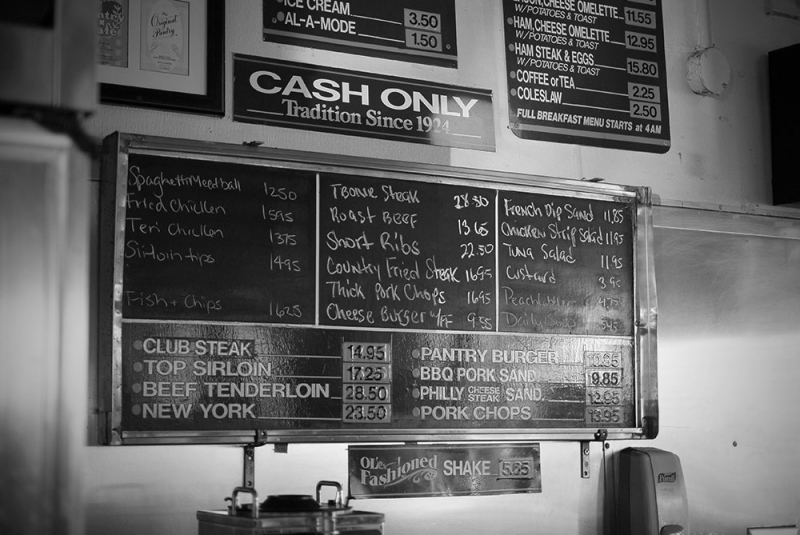 Original
Pantry
ICE CREAM 3.50
AL-A-MODE 1.50
CHEESE OMELETTE 11.55
W/POTATOES & TOAST
HAM, CHEESE OMELETTE 12.95
W/POTATOES & TOAST
HAM STEAK & EGGS 15.80
W/POTATOES & TOAST
COFFEE or TEA 2.25
COLESLAW 2.50
FULL BREAKFAST MENU STARTS at 4AM
CASH ONLY
Tradition Since 1924
Spaghetti Meedball 1250
Fried Chicken 1595
Teri Chicken 1375
Sirloin tips 1495
Fish + Chips 1625
TBone Steak 28.80
Roast Beef 13.65
Short Ribs 22.50
Country Fried Steak 1695
Thick Pork Chops 1695
Cheese Burger w/FF 9.55
French Dip Sand 11.85
Chicken Strip Salad 11.95
Tuna Salad 11.95
Custard 3.90
Daily
CLUB STEAK 14.95
TOP SIRLOIN 17.25
BEEF TENDERLOIN 28.50
NEW YORK 23.50
PANTRY BURGER
BBQ PORK SAND 9.85
PHILLY CHEESE STEAK SAND. 12.95
PORK CHOPS 13.95
OL'e Fashioned SHAKE 5.65
Purell